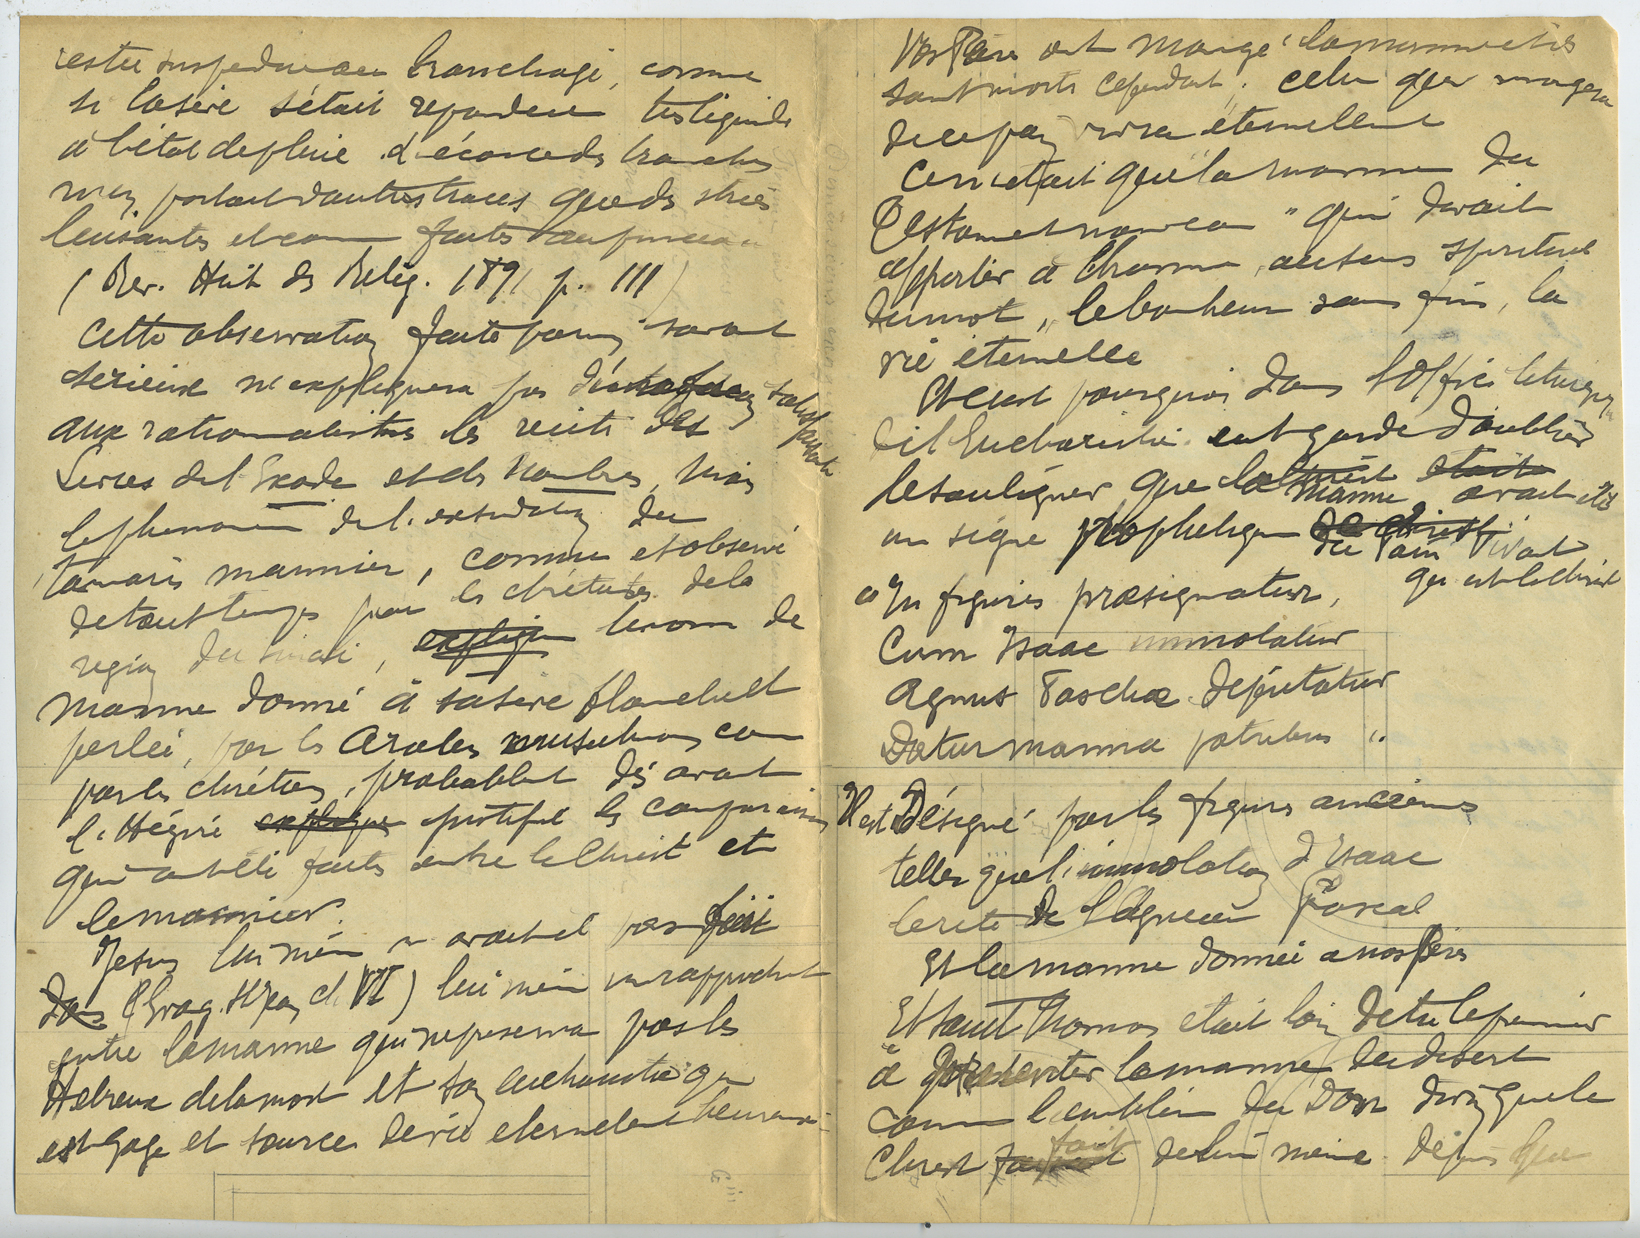 restée suspendue au branchage, comme
si la sève s'était répandue très liquide
à l'état de pluie. L'écorce des branches
n'en portait d'autres traces que des stries
luisantes et comme faites au pinceau
(Rev. Hist. des Relig. 1891 p. 111)
Cette observation faite par un savant
sérieux n'expliquera pas d'une façon satisfaisante
aux rationalistes les récits des
Livres de l'Exode et des Nombres, mais
le phénomène de l'exsudation du
tamaris mannier, comme est observé
de tout temps par les chrétiens de la
région du Sinaï, explique le nom de
manne donné à sa sève blanche et
perlée, par les Arabes musulmans comme
par les chrétiens, probablement dès avant
l'Hégire explique justifie les comparaisons
qui ont été faites entre le Christ et
le mannier.
Jésus lui même n'avait-il pas fait
dans (Evang. St Jean, ch. VI) lui même un rapprochement
entre la manne qui ne préserva pas les
Hébreux de la mort et son eucharistie qui
est gage et source de vie éternellement heureuse:
Vos Pères ont mangé la manne et ils
sont morts cependant; celui qui mangera
de ce pain vivra éternellement
C'en était que la manne du
Testament nouveau "qui devait
apporter à l'homme, au sens spirituel
du mot, le bonheur sans fin, la
vie éternelle
Et c'est pourquoi dans l'Office liturgique
de l'Eucharistie eut garde d'oublier
de souligner que la manne était avait été
un signe prophétique de Christ du Pain Vivant
qui est le Christ
"In figuris præsignatur,
Cum Isaac immolatur
Agnus Paschæ deputatur
Datur manna patribus".
Il est Désigné par les figures anciennes
telles que l'immolation d'Isaac
le rite de l'Agneau Pascal
Et la manne donnée à nos Pères
Et Saint Thomas était loin d'être le premier
à présenter la manne du désert
comme l'emblème du Don divin que le
Christ fait de lui même. Depuis que